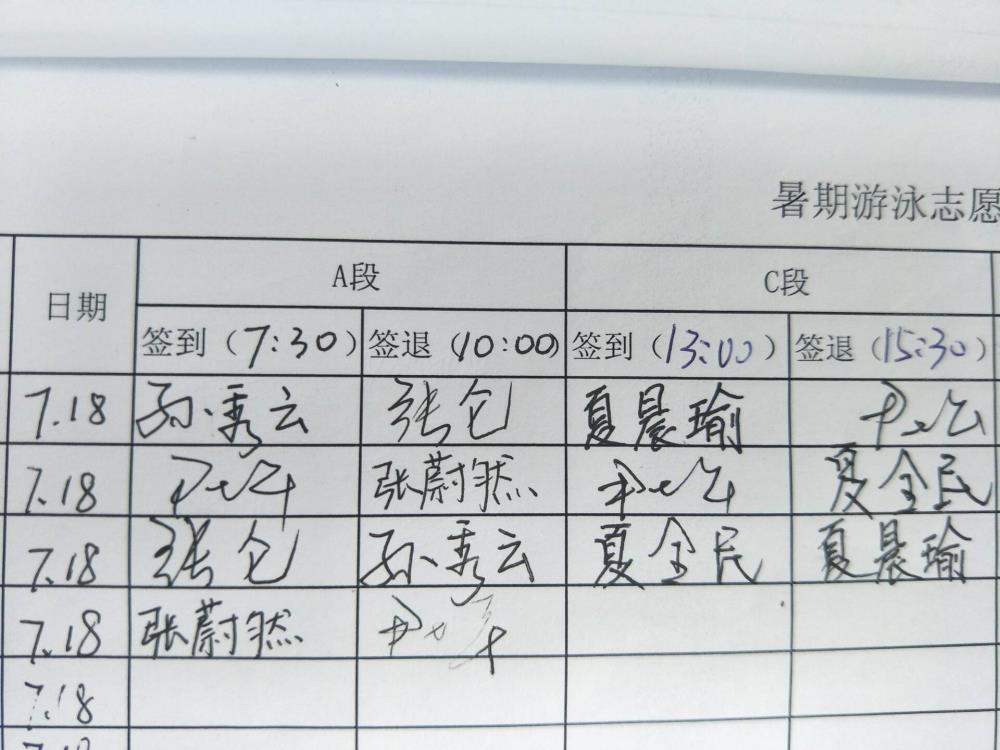 暑期游泳志愿
日期 A段 C段
签到（7:30） 签退（10:00） 签到（13:00） 签退（15:30）
7.18 孙秀云 张仑 夏晨瑜
7.18 张蔚然 夏全民
7.18 张仑 孙秀云 夏全民 夏晨瑜
7.18 张蔚然
7.18